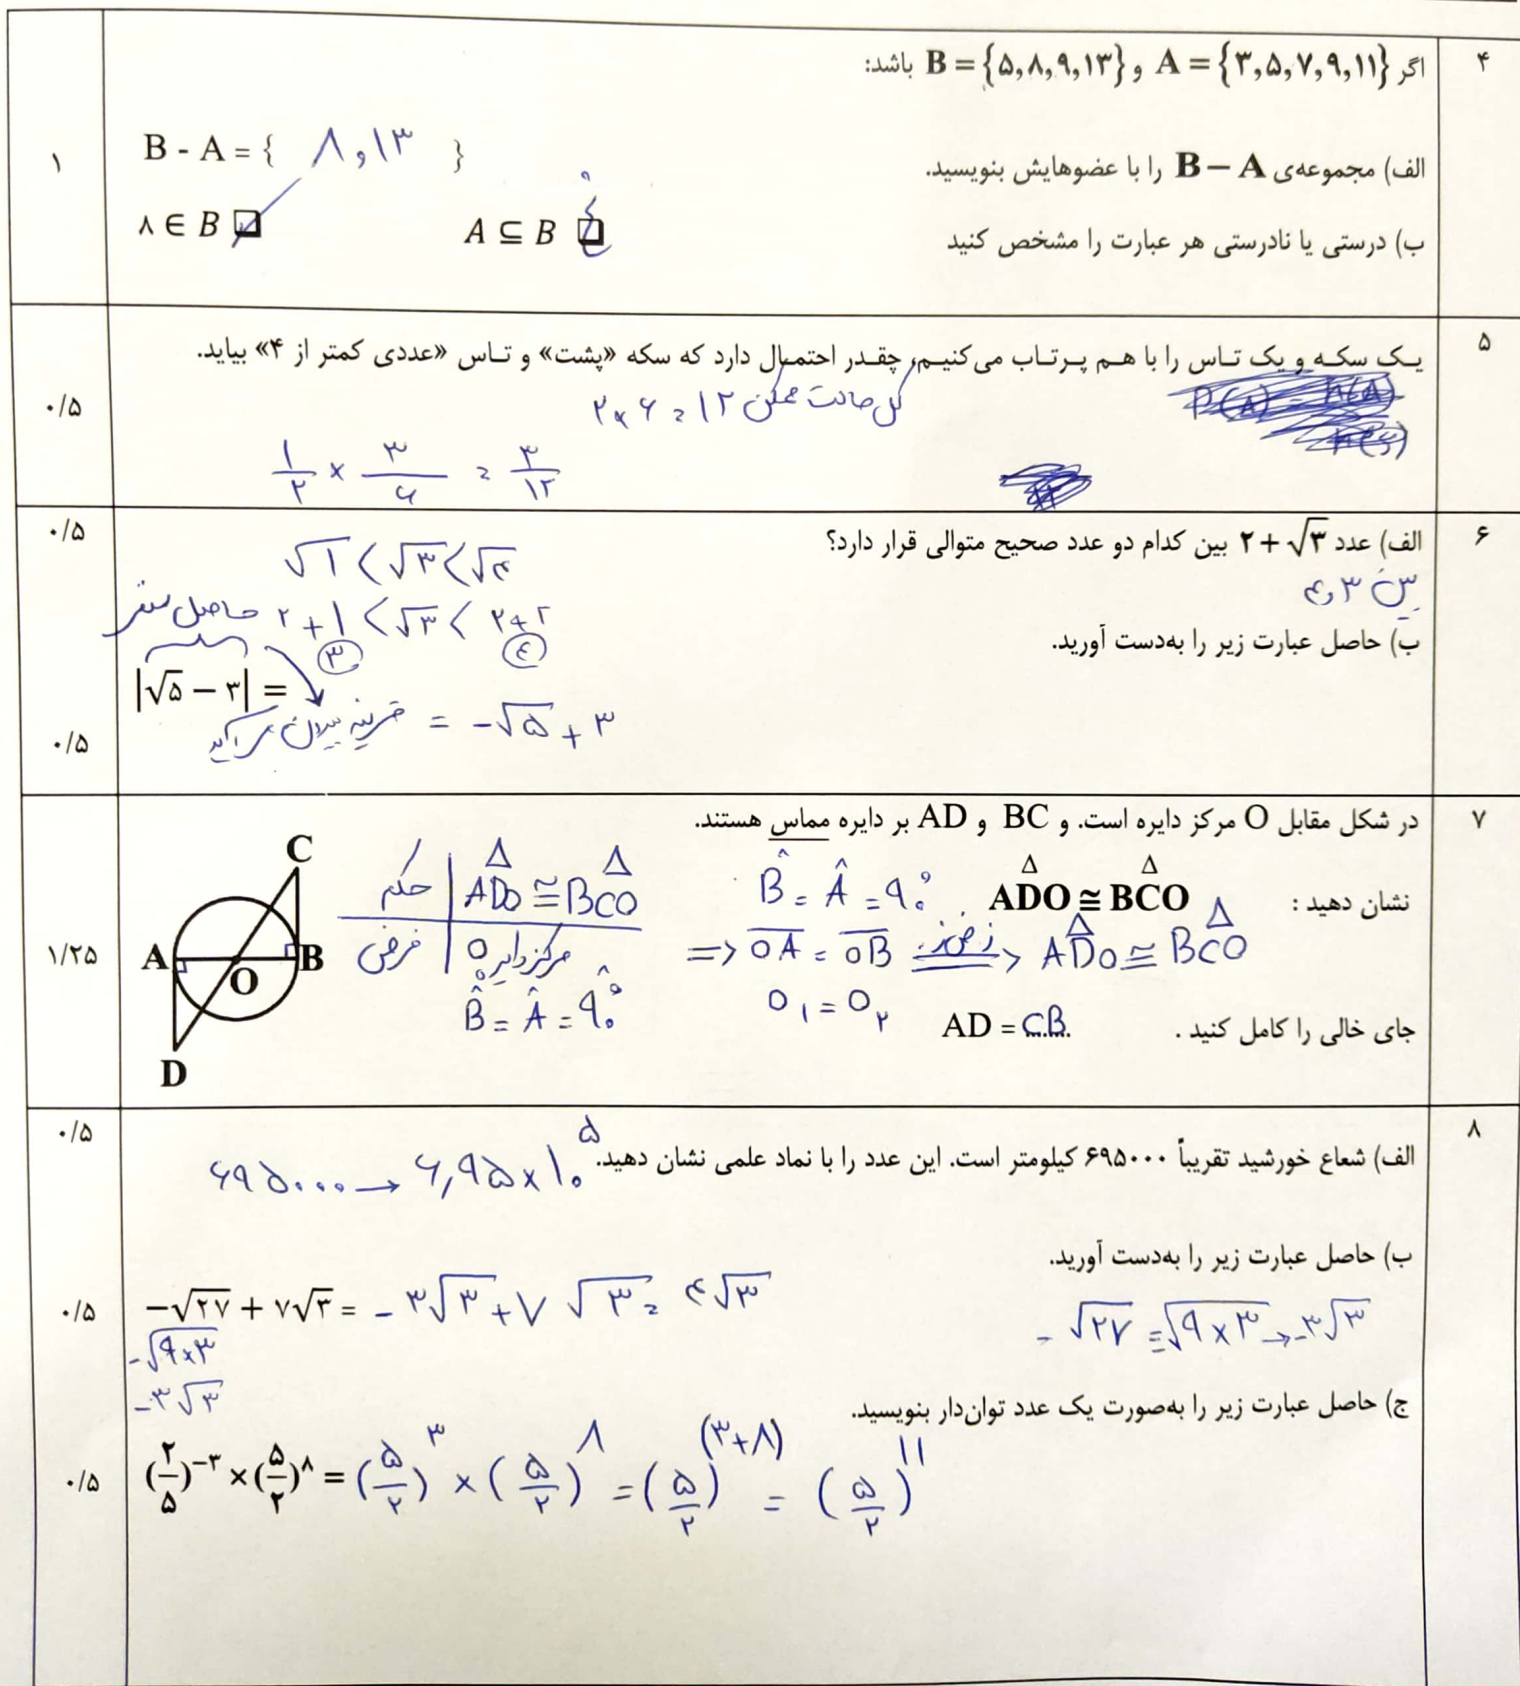 ۴
اگر A = {۳,۵,۷,۹,۱۱} و B = {۵,۸,۹,۱۳} باشد:
الف) مجموعه‌ی B – A را با عضوهایش بنویسید.
B - A = { ۸ , ۱۳ }
۱
ب) درستی یا نادرستی هر عبارت را مشخص کنید
A ⊆ B غ
۸ ∈ B
۵
یک سکه و یک تاس را با هم پرتاب می‌کنیم، چقدر احتمال دارد که سکه «پشت» و تاس «عددی کمتر از ۴» بیاید.
۰/۵
کل حالت ممکن ۲×۶=۱۲
۱/۲ × ۳/۶ = ۳/۱۲
۶
الف) عدد ۲+√۳ بین کدام دو عدد صحیح متوالی قرار دارد؟
۰/۵
√۱ < √۳ < √۴
بین ۳ و ۴
۲+۱ < √۳ < ۲+۲
۳ ۴
ب) حاصل عبارت زیر را به‌دست آورید.
حاصل منفی
|√۵ – ۳| =
قرینه بیرون می‌آید = -√۵ + ۳
۰/۵
۷
در شکل مقابل O مرکز دایره است. و BC و AD بر دایره مماس هستند.
نشان دهید : ADO ≅ BCO
Δ Δ
B̂ = Â = ۹۰°
OA = OB
O۱ = O۲
⇒ ز ض ز ADO ≅ BCO
حکم ADO ≅ BCO
فرض O مرکز دایره
B̂ = Â = ۹۰°
۱/۲۵
جای خالی را کامل کنید .
AD = C.B.
C
A
B
O
D
۸
الف) شعاع خورشید تقریباً ۶۹۵۰۰۰ کیلومتر است. این عدد را با نماد علمی نشان دهید.
۰/۵
۶۹۵۰۰۰ → ۶,۹۵×۱۰^۵
ب) حاصل عبارت زیر را به‌دست آورید.
۰/۵
–√۲۷ + ۷√۳ = -۳√۳ + ۷√۳ = ۴√۳
-√۹×۳
-۳√۳
-√۲۷ = -√۹×۳ → -۳√۳
ج) حاصل عبارت زیر را به‌صورت یک عدد توان‌دار بنویسید.
۰/۵
(۲/۵)^–۳ × (۵/۲)^۸ = (۵/۲)^۳ × (۵/۲)^۸ = (۵/۲)^(۳+۸) = (۵/۲)^۱۱